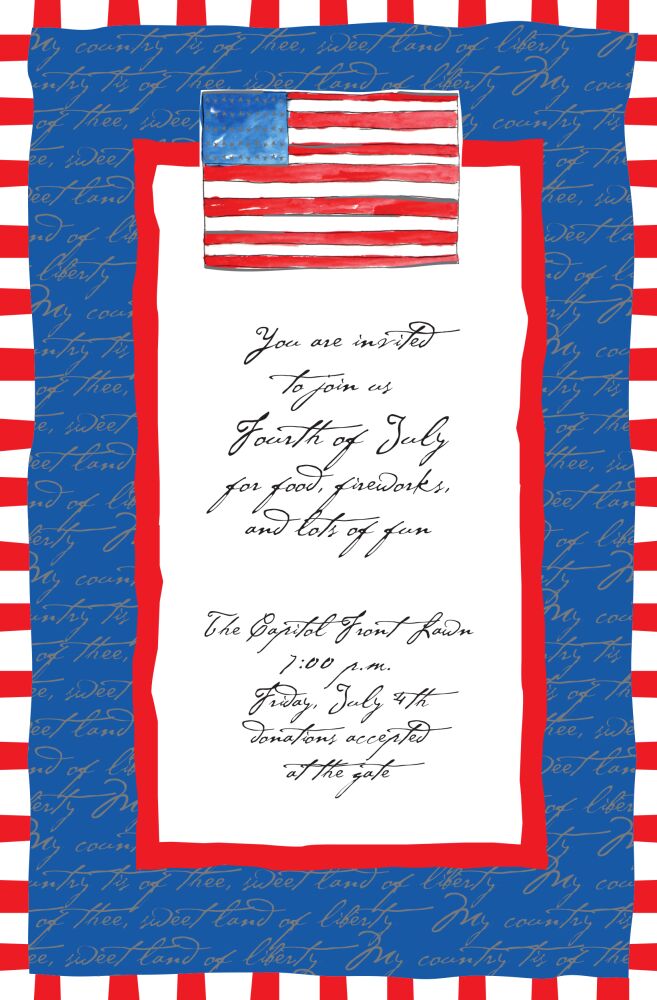 My country tis of thee, sweet land of liberty
untry tis of thee, sweet land of liberty My coun
of thee, sweet
My country tis
sweet land
of liberty
liberty
My coun
You are invited
to join us
Fourth of July
for food, fireworks,
and lots of fun
The Capitol Front Lawn
7:00 p.m.
Friday, July 4th
donations accepted
at the gate
untry tis of thee, sweet land of liberty My coun
of thee, sweet land of liberty My country tis
sweet land of liberty My country tis of thee,